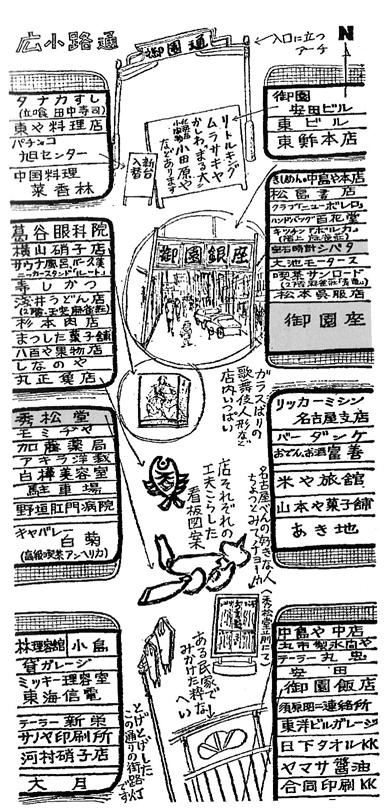 広小路通
御園通
入口に立つ
アーチ
N
タナカすし
(立喰 田中寿司)
東や料理店
パチンコ
旭センター
中国料理
菜香林
リトルキング
ムラサキヤ
かしわ、まる大
小田原や
などであります
新台
入替
御園
安田ビル
東ビル
東鮓本店
葛谷眼科院
横山硝子店
寿しかつ
浅井うどん店
杉本肉店
まつした菓子舗
八百や果物店
しなのや
丸正薬店
御園銀座
きしめんの中島や本店
松島書店
クラブニューボレロ
ハンドバッグ百花堂
宝石時計シバタ
大池モータース
喫茶サンロード
松本呉服店
御園座
ガラスばりの
歌舞伎人形など
店内いっぱい
秀松堂
モミヂヤ
加藤薬局
アキラ洋裁
白樺美容室
駐車場
野垣肛門病院
キャバレー
白菊
(高級喫茶アンヘリカ)
店それぞれの
工夫こらした
看板図案
リッカーミシン
名古屋支店
バーダンケ
おでんお酒 富善
米や旅館
山本や菓子舗
あき地
名古屋べんの好きな人
ちょっとみてチョーよ
(秀松堂正前にて)
ある民家で
みかけた粋な
へい
とげとげした
この通りの街路灯
です
林理容館
小島
貸ガレージ
ミッキー理容室
東海信電
テーラー新栄
サノヤ印刷所
河村硝子店
大月
中島や中店
丸市製氷同や
テーラー丸忠
安田
御園飯店
須原昭=連絡所
東洋ビルガレージ
日下タオルKK
ヤマサ醤油
合同印刷KK